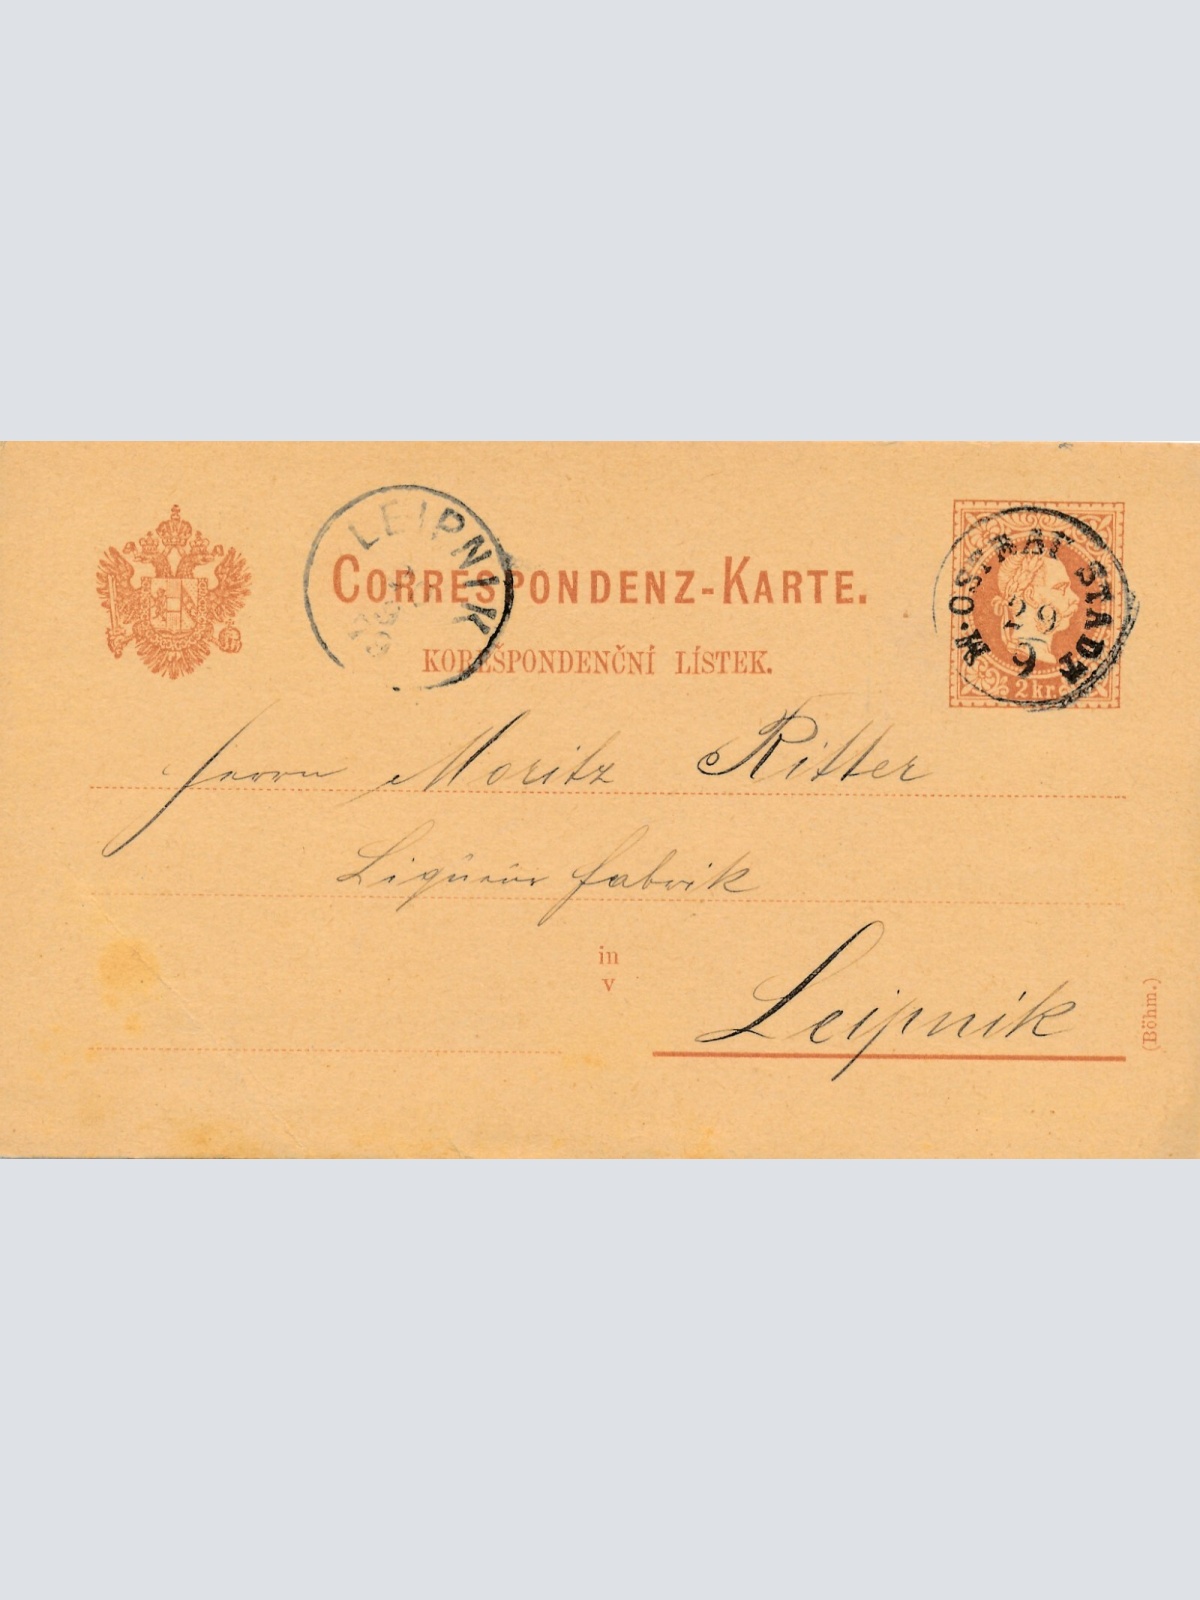 LEIPNIK
CORRESPONDENZ-KARTE.
KOREŠPONDENČNÍ LÍSTEK.
M. OSTRAU STADT
29
9
2 kr.
Herrn Moritz Ritter
Liqueur fabrik
in
v
Leipnik
(Böhm.)